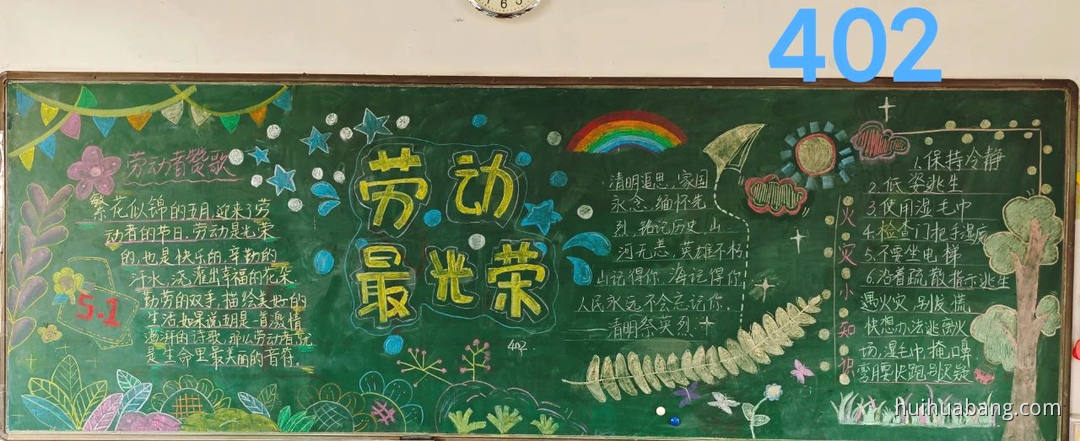 402
劳动者赞歌
繁花似锦的五月,迎来了劳
动者的节日。劳动是光荣
的,也是快乐的,辛勤的
汗水,浇灌出幸福的花朵
勤劳的双手,描绘美好的
生活,如果说五月是一首激情
澎湃的诗歌,那么劳动者就
是生命里最美丽的音符。
5.1
劳动
最光荣
402
·清明遥思,家国
永念,缅怀先
烈,铭记历史,山
河无恙,英雄不朽
山记得你,海记得你,
人民永远不会忘记你,
——清明祭英烈.
火灾小知识
1.保持冷静
2.低姿逃生
3.使用湿毛巾
4.检查门把手温度
5.不要坐电梯
6.沿着疏散指示逃生
遇火灾,别发慌
快想办法逃离火
场,湿毛巾,掩口鼻
弯腰快跑别迟疑
huihuabang.com